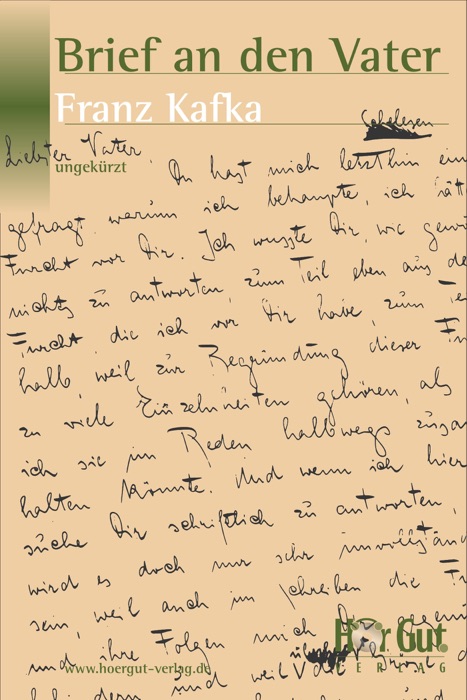 Brief an den Vater
Franz Kafka
Schelesen
Liebster Vater,
ungekürzt
Du hast mich letzthin ein
gefragt, warum ich behaupte, ich hätt
Furcht vor Dir. Ich wusste Dir, wie gewö
nichts zu antworten, zum Teil eben aus de
Furcht, die ich vor Dir habe, zum Te
halb, weil zur Begründung dieser Fu
zu viele Einzelheiten gehören, als
ich sie im Reden halbwegs zusa
halten könnte. Und wenn ich hier
suche Dir schriftlich zu antworten,
wird es doch nur sehr unvollstän
sein, weil auch im Schreiben die Fu
und ihre Folgen mich Dir gegenü
Hör Gut.
VERLAG
www.hoergut-verlag.de
und weil